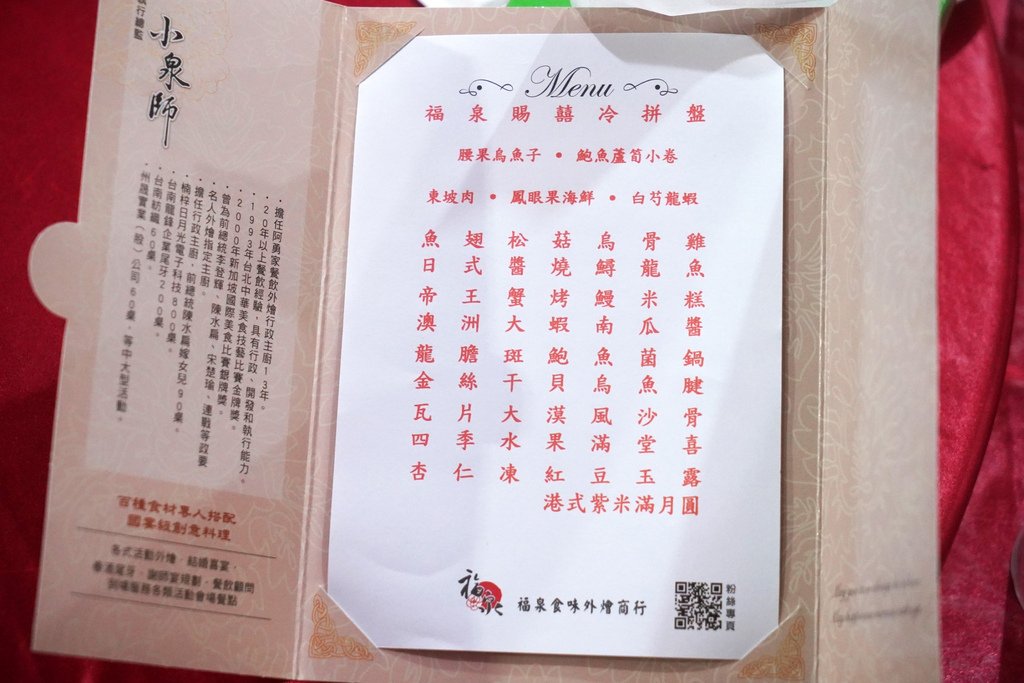 執行總監
小泉師
・擔任阿勇家餐飲外燴行政主廚13年。
・20年以上餐飲經驗，具有行政、開發和執行能力。
・1993年台北中華美食技藝比賽金牌獎。
・2000年新加坡國際美食比賽銀牌獎。
・曾為前總統李登輝、陳水扁、宋楚瑜、連戰等政要
名人外燴指定主廚。
・擔任行政主廚，前總統陳水扁嫁女兒90桌。
・楠梓日月光電子科技800桌。
・台南龍鋒企業尾牙200桌。
・台南紡織60桌。
州晟實業（股）公司60桌，等中大型活動。
百種食材專人搭配
國宴級創意料理
各式活動外燴．結婚喜宴．
春酒尾牙．謝師宴規劃．餐飲顧問
到場服務各類活動會場餐點
Menu
福泉賜囍冷拼盤
腰果烏魚子・鮑魚蘆筍小卷
東坡肉・鳳眼果海鮮・白芍龍蝦
魚翅松菇烏骨雞
日式醬燒鱘龍魚
帝王蟹烤鰻米糕
澳洲大蝦南瓜醬
龍膽斑鮑魚菌鍋
金絲干貝烏魚腱
瓦片大漠風沙骨
四季水果滿堂喜
杏仁凍紅豆玉露
港式紫米滿月圓
福泉
福泉食味外燴商行
粉絲專頁